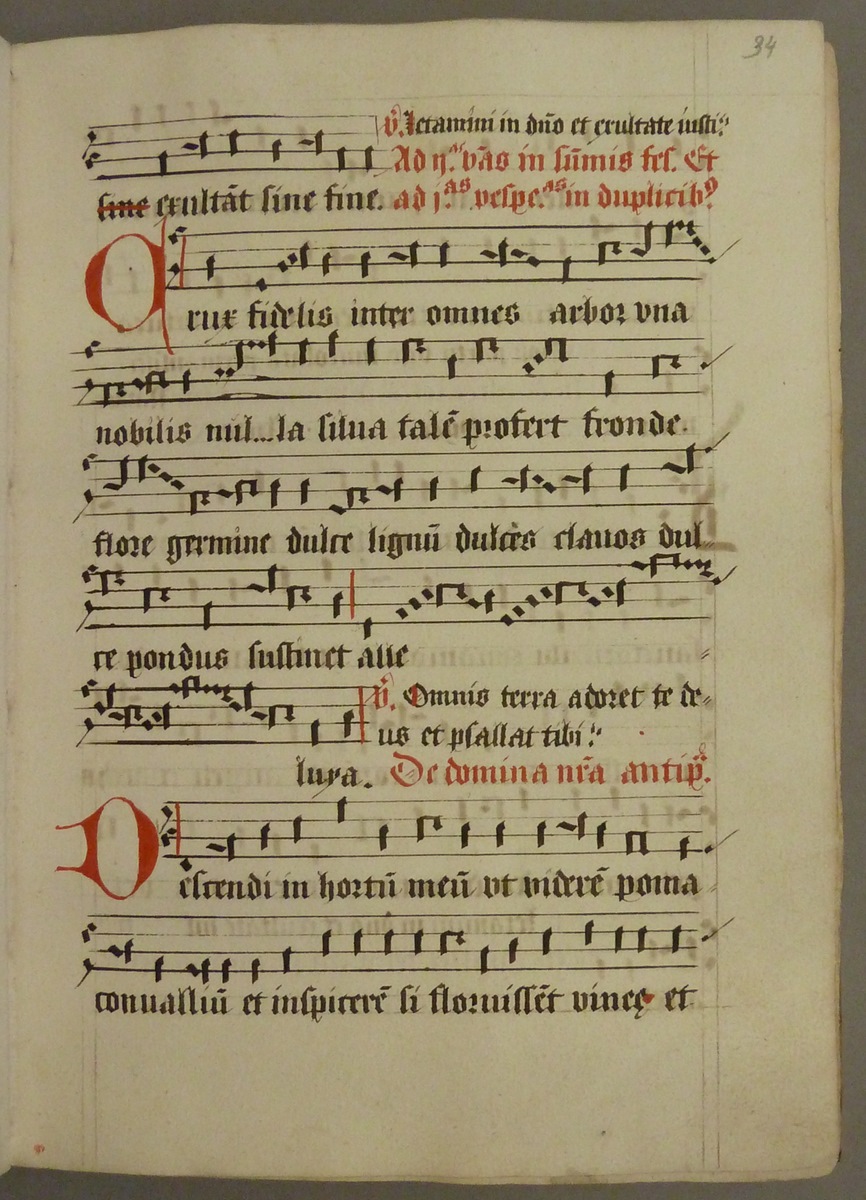 34
℣. Letamini in dño et exultate iusti.
Ad ij.as vãs in sũmis fes. Et
sine exultãt sine fine. ad j.as vespe.as in duplicibꝰ
Crux fidelis inter omnes arbor vna
nobilis nul...la silua talẽ profert fronde.
flore germine dulce lignũ dulces clauos dul-
ce pondus sustinet alle-
℣. Omnis terra adoret te de-
us et psallat tibi.
luya. De domina nr̃a antiph̃.
Descendi in hortũ meũ vt viderẽ poma
conualliũ et inspicerẽ si floruissẽt vineę et